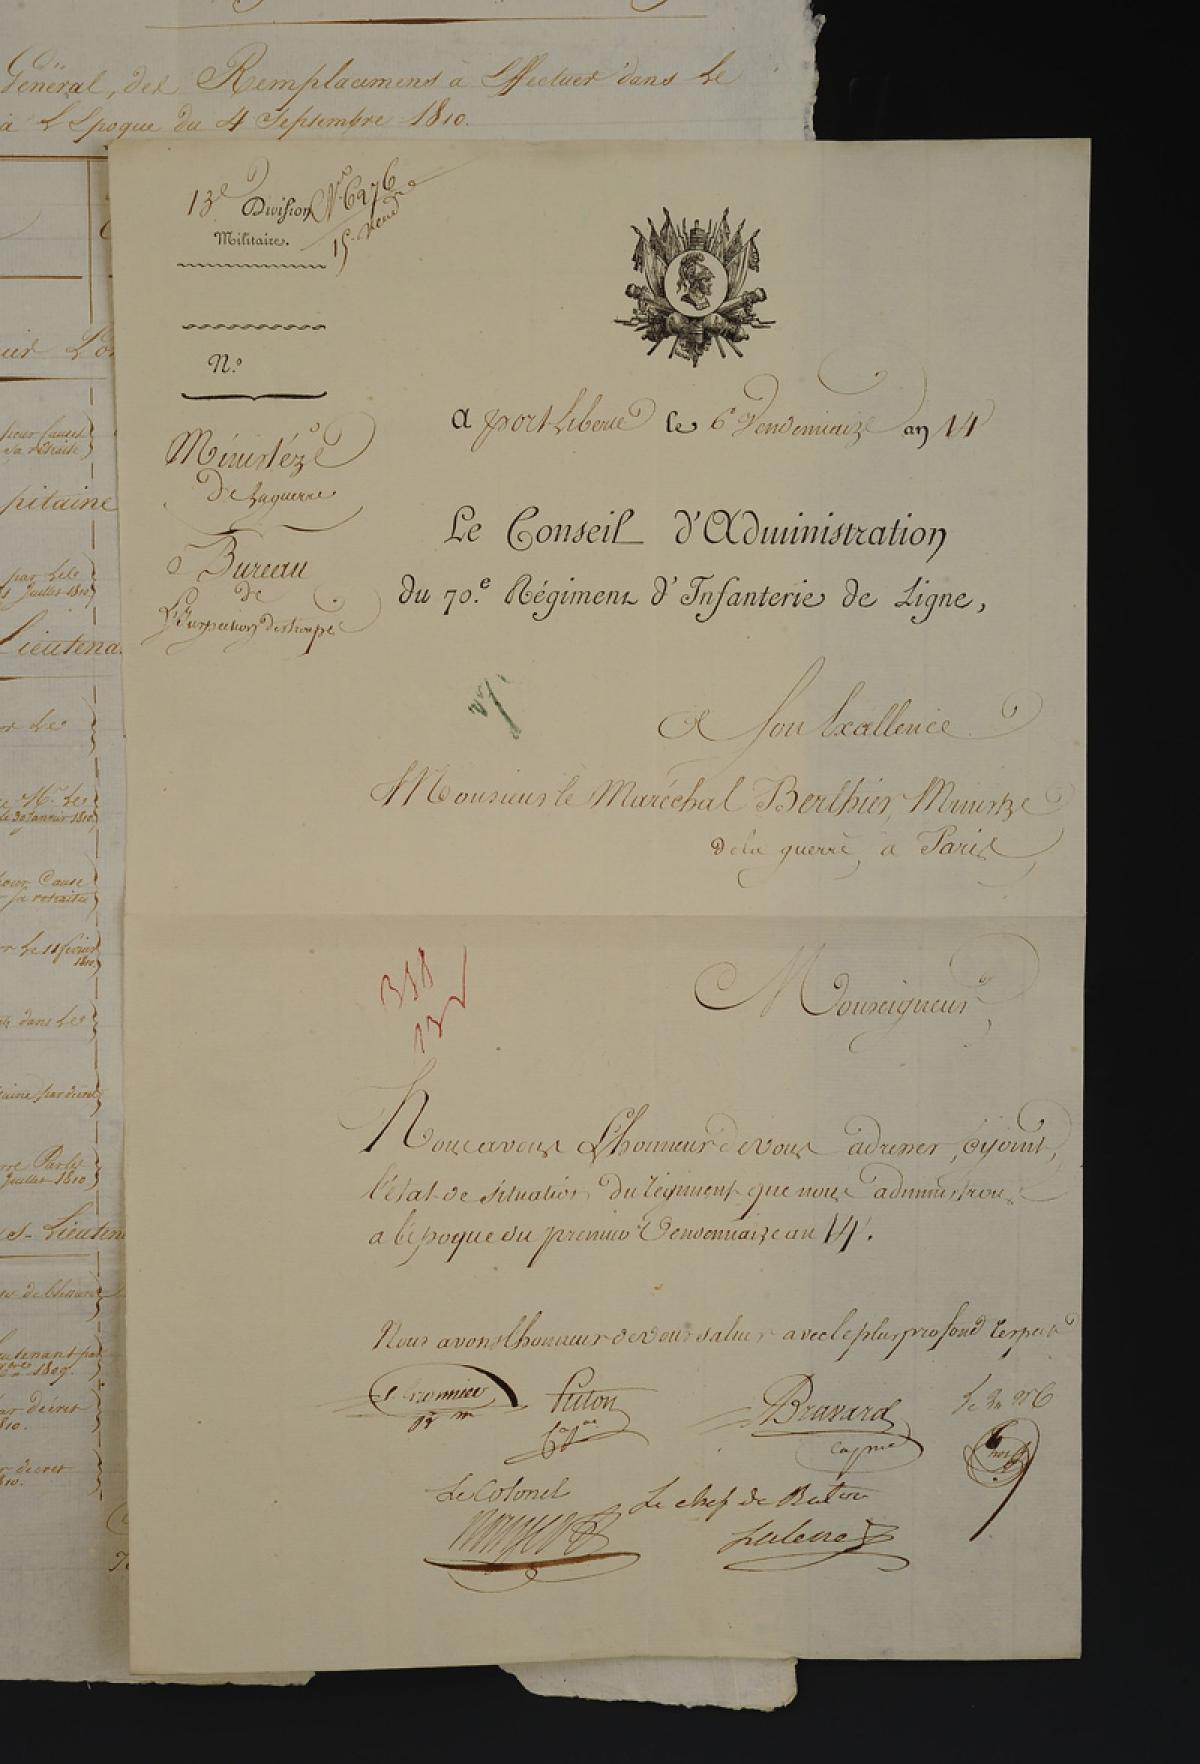 Général, des Remplacemens à Effectuer dans Le
à L'Epoque du 4 Septembre 1810.
pour Cause
sa retraite
pitaine
par Les
Juillet 1810
Lieutena
or Le
Mr. Le
le 30 Janvier 1810
pour Cause
sa retraite
Le 11 février
1810
dans Les
par décret
Juillet 1810
s-Lieuten
Lieutenant par
1809.
par décret
1810.
décret
1810.
13e Division
Militaire.
No. 6276
15 vend.re
N.o
Ministère
De La guerre
Bureau
de
L'Inspection des troupes
a port Liberté le 6 Vendemiaire an 14
Le Conseil d'Administration
du 70.e Régiment d'Infanterie de Ligne,
A Son Excellence
Monsieur le Maréchal Berthier, Ministre
de la guerre, à Paris
Monseigneur,
Nous avons L'honneur de vous adresser, cijoint,
l'état de situation du régiment que nous administrons
a l'époque du premier Vendemiaire an 14.
Nous avons lhonneur de vous saluer avec le plus profond respect
Puton
Bravard
capne
Le Colonel
Le chef de Baton